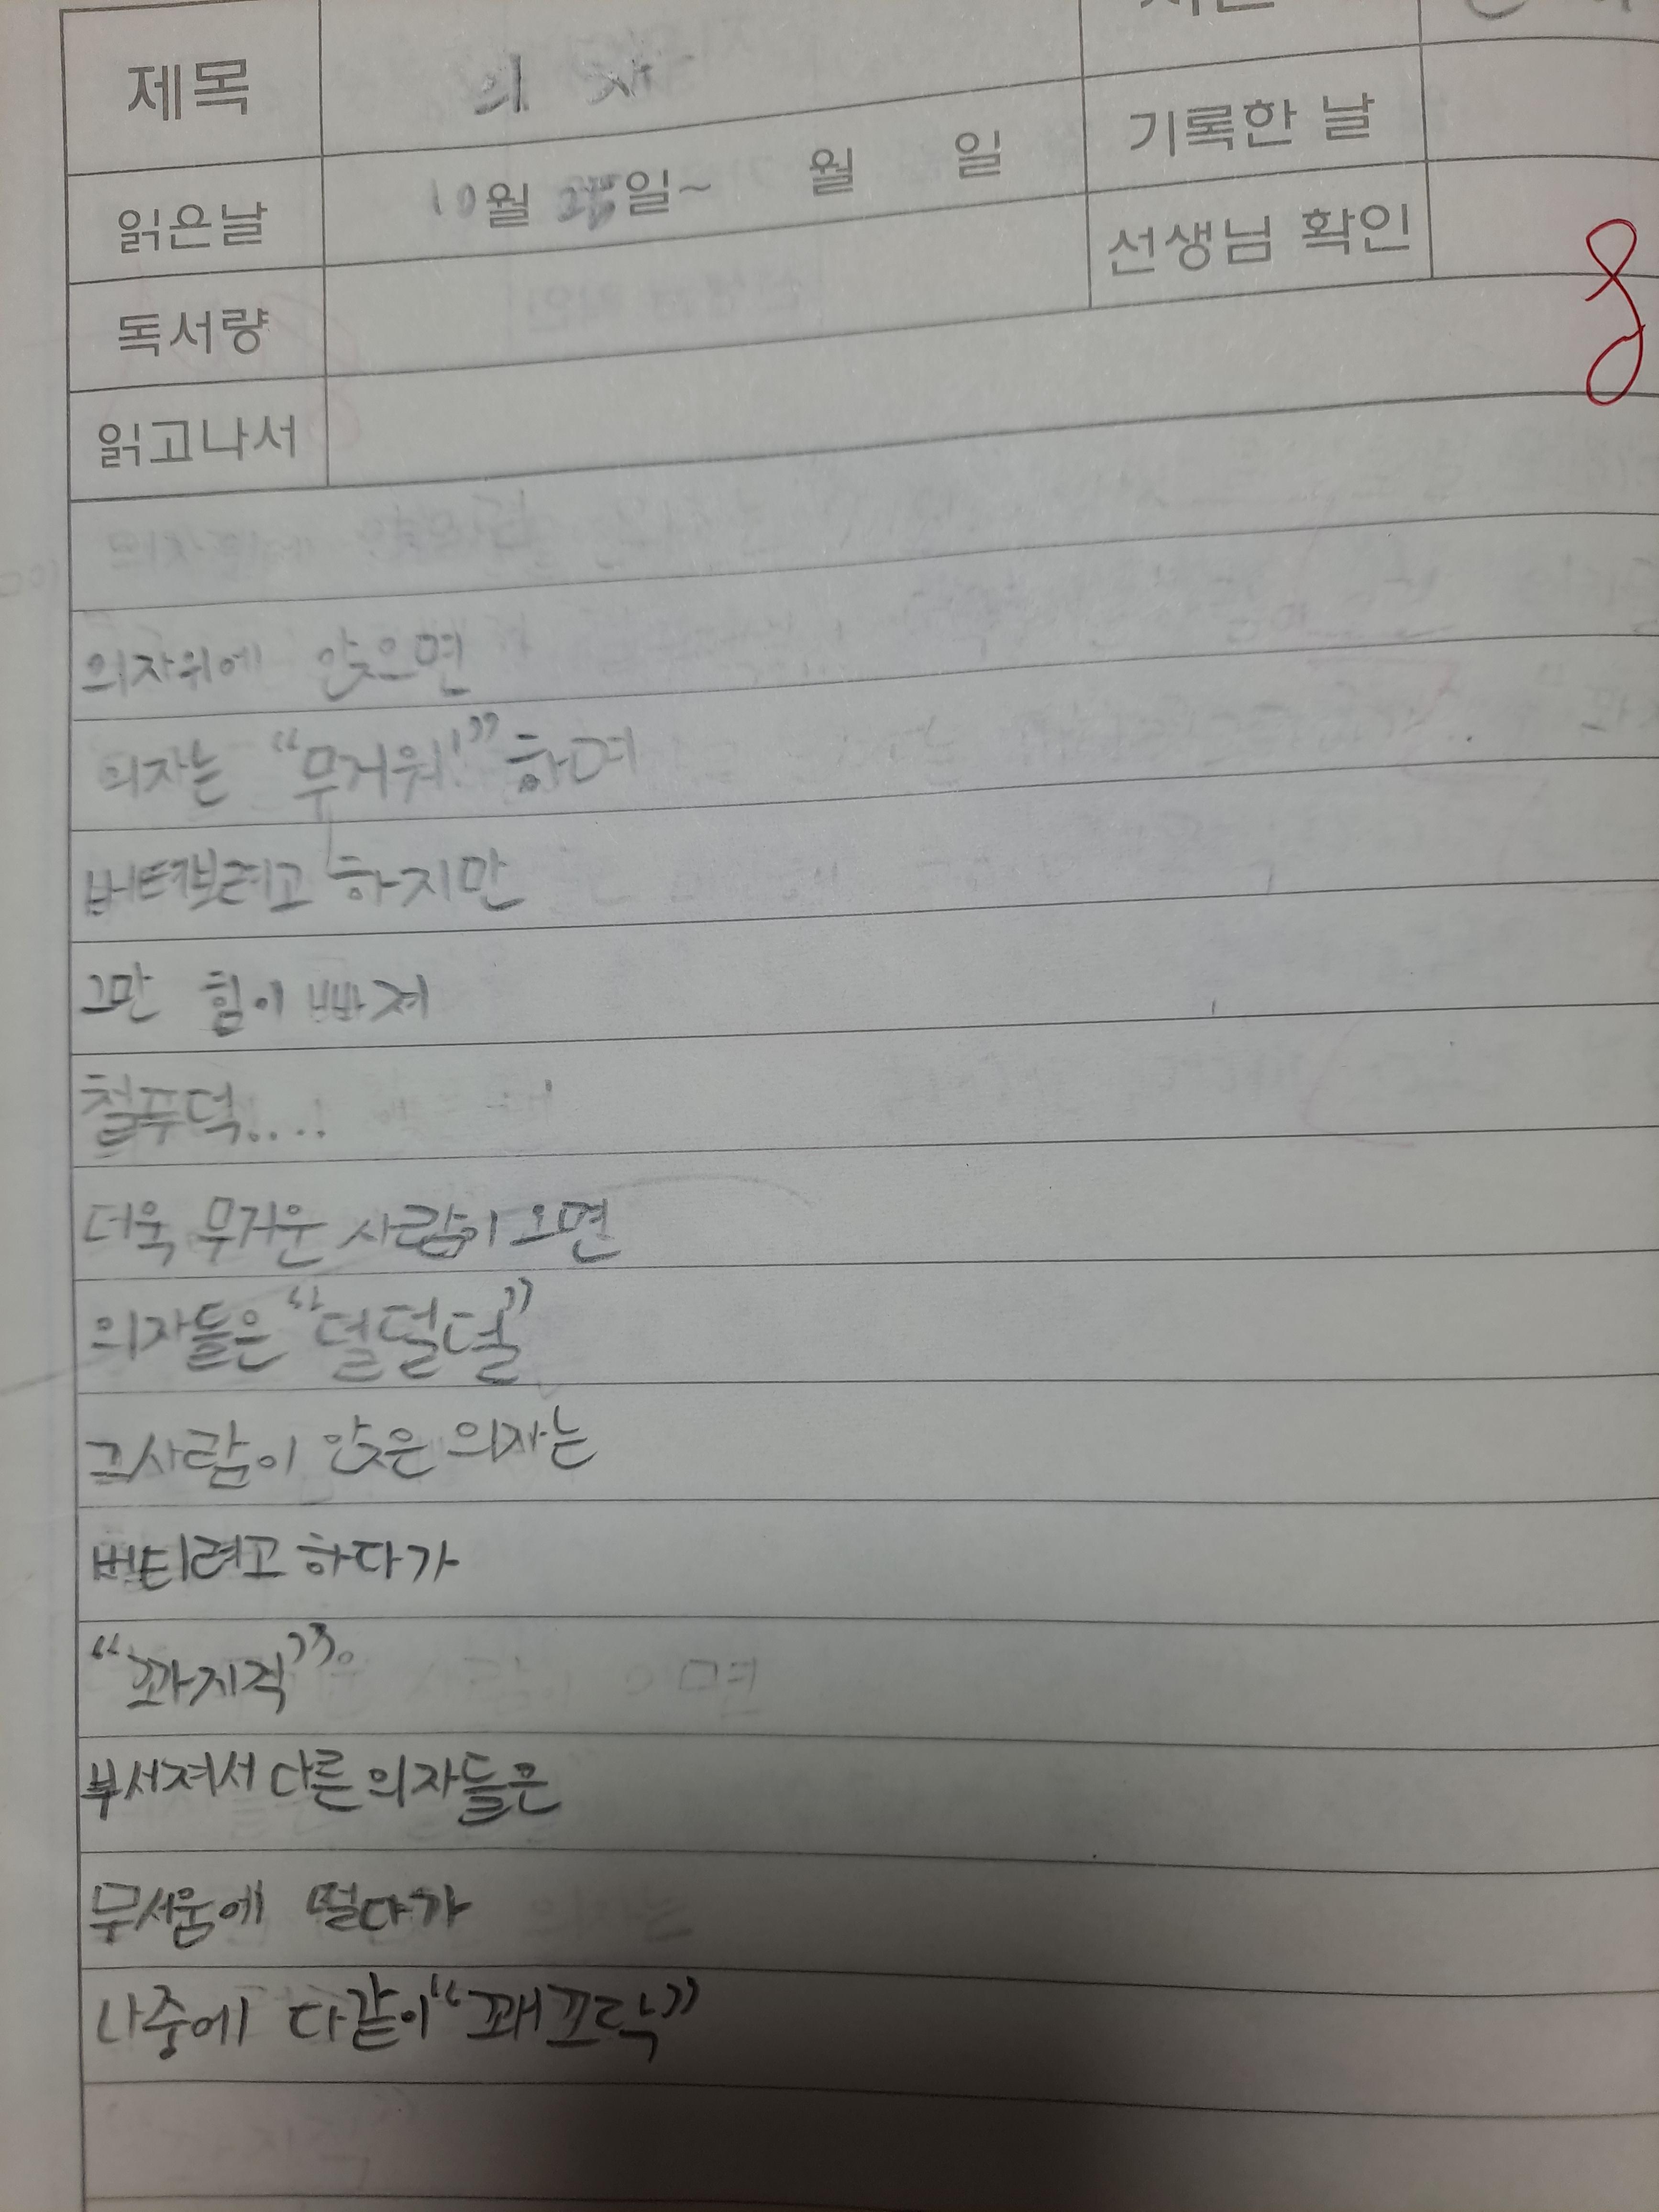 제목 의자
기록한 날
읽은날 10월 일~ 월 일
선생님 확인
독서량
읽고나서
의자위에 앉으면
의자는 "무거워!" 하며
하지만
그만 힘이 빠져
철푸덕....
더욱 무거운 사람이 오면
의자들은 "덜덜덜"
그사람이 앉은 의자는
버티려고 하다가
"꽈지직".
부서져서 다른 의자들은
무서움에 떨다가
나중에 다같이 "꽤꼬닥"